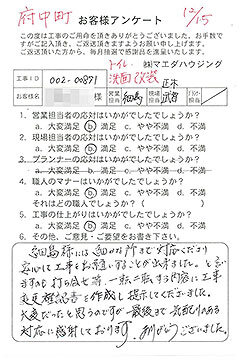 府中町 お客様アンケート 12/15
この度は工事のご用命を頂きありがとうございました。お手数で
すがご記入頂き、ご返送頂きますようお願い申し上げます。
ご返送頂いた方から、毎月抽選で感謝品を進呈いたします。
トイレ ㈱マエダハウジング
工事ID 002-00871 洗面改装 正木
お客様名 様 営業担当 細島 現場担当 武智
1. 営業担当者の応対はいかがでしたでしょうか?
a. 大変満足 b. 満足 c. やや不満 d. 不満
2. 現場担当者の応対はいかがでしたでしょうか?
a. 大変満足 b. 満足 c. やや不満 d. 不満
3. プランナーの応対はいかがでしたでしょうか?
a. 大変満足 b. 満足 c. やや不満 d. 不満
4. 職人のマナーはいかがでしたでしょうか?
a. 大変満足 b. 満足 c. やや不満 d. 不満
それはどの職人でしょうか?( )
5. 工事の仕上がりはいかがでしたでしょうか?
a. 大変満足 b. 満足 c. やや不満 d. 不満
6. その他、ご意見・ご要望をお書き下さい。
細島様には細かい所まで対応くださり
安心して工事をお願いすることが出来ました。と言い
ますのも打ち合せ等、一転二転する内容に工事
変更確認書を作成し提示してくださいました。
大変だったと思うのですが最後まで
対応に感謝しております。ありがとうございました。